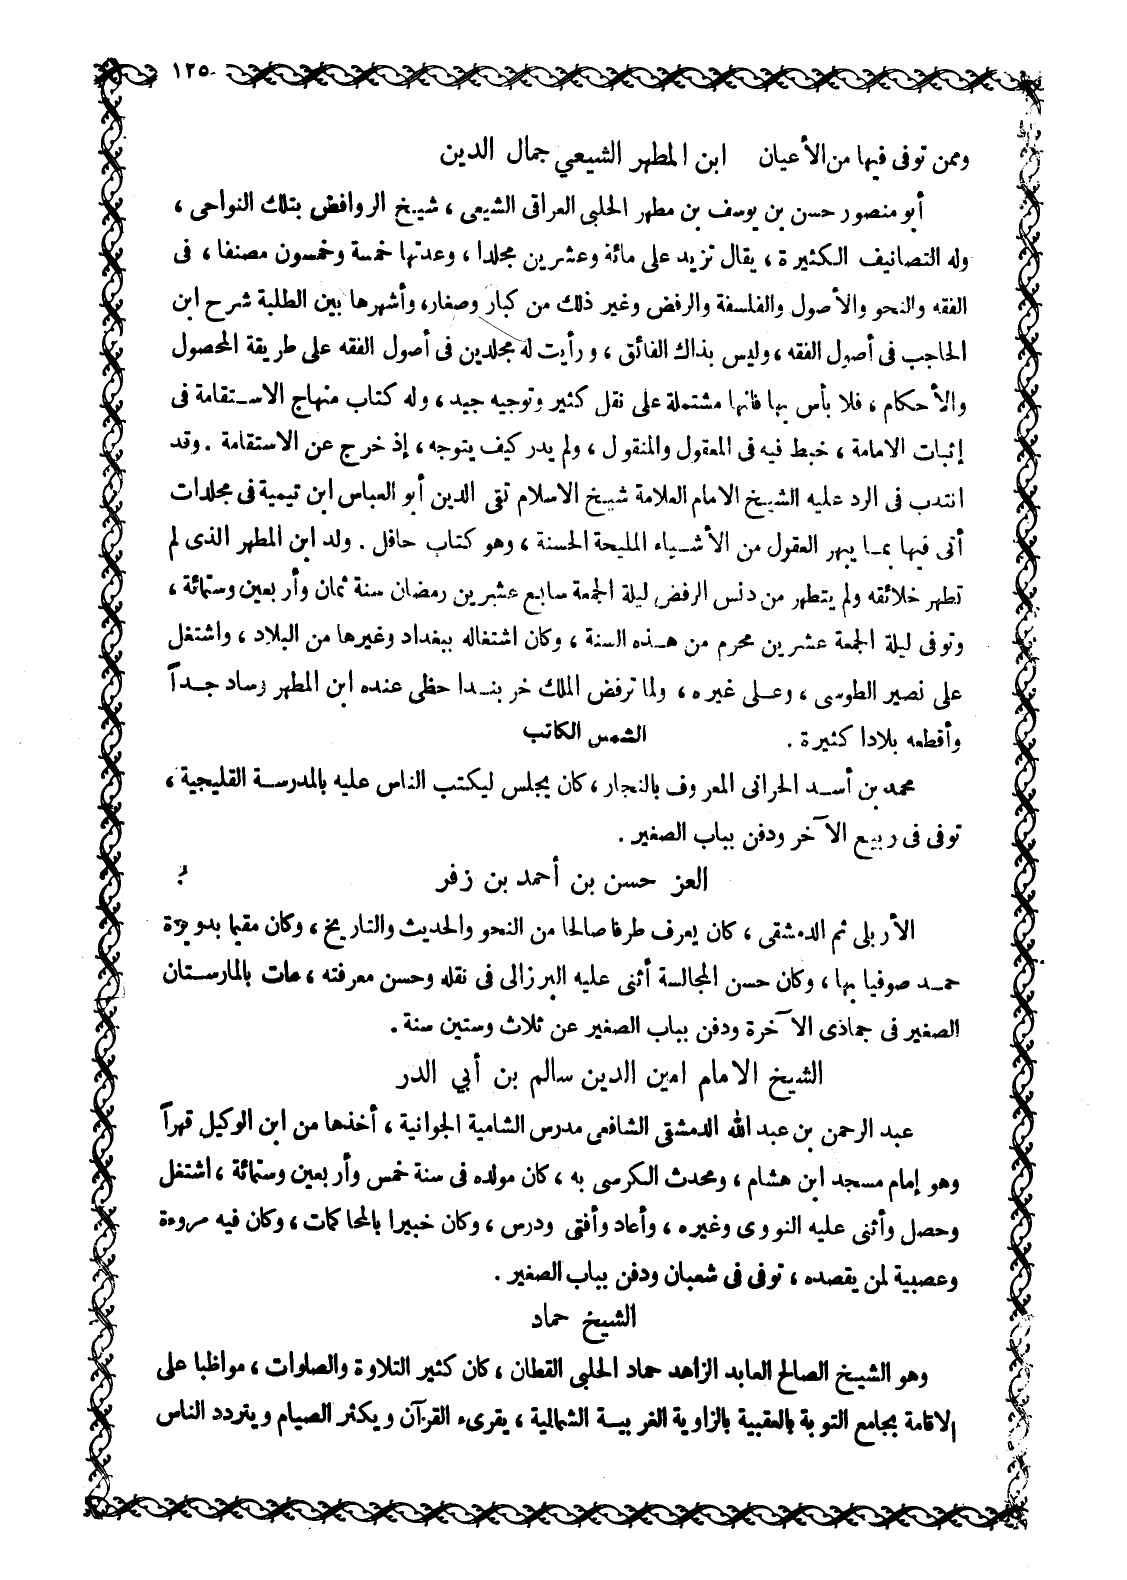 ١٢٥
وممن توفى فيها من الأعيان ابن المطهر الشيعي جمال الدين
أبو منصور حسن بن يوسف بن مطهر الحلبى العراقى الشيعى ، شيخ الروافض بتلك النواحى ،
وله التصانيف الكثيرة ، يقال تزيد على مائة وعشرين مجلدا ، وعدتها خمسة وخمسون مصنفا ، فى
الفقه والنحو والأصول والفلسفة والرفض وغير ذلك من كبار وصغار، وأشهرها بين الطلبة شرح ابن
الحاجب فى أصول الفقه ، وليس بذاك الفائق ، ورأيت له مجلدين فى أصول الفقه على طريقة المحصول
والأحكام ، فلا بأس بها فانها مشتملة على نقل كثير وتوجيه جيد ، وله كتاب منهاج الاستقامة فى
إثبات الامامة ، خبط فيه فى المعقول والمنقول ، ولم يدر كيف يتوجه ، إذ خرج عن الاستقامة . وقد
انتدب فى الرد عليه الشيخ الامام العلامة شيخ الاسلام تقى الدين أبو العباس ابن تيمية فى مجلدات
أتى فيها بما يبهر العقول من الأشياء المليحة الحسنة ، وهو كتاب حافل . ولد ابن المطهر الذى لم
تطهر خلائقه ولم يتطهر من دنس الرفض ليلة الجمعة سابع عشرين رمضان سنة ثمان وأربعين وستمائة ،
وتوفى ليلة الجمعة عشرين محرم من هذه السنة ، وكان اشتغاله ببغداد وغيرها من البلاد ، واشتغل
على نصير الطوسى ، وعلى غيره ، ولما ترفض الملك خربندا حظى عنده ابن المطهر وساد جداً
وأقطعه بلادا كثيرة . الشمس الكاتب
محمد بن أسد الحرانى المعروف بالنجار ، كان يجلس ليكتب الناس عليه بالمدرسة القليجية ،
توفى فى ربيع الآخر ودفن بباب الصغير .
العز حسن بن أحمد بن زفر
الأربلى ثم الدمشقى ، كان يعرف طرفا صالحا من النحو والحديث والتاريخ ، وكان مقيما بدويرة
حمد صوفيا بها ، وكان حسن المجالسة أثنى عليه البرزالى فى نقله وحسن معرفته ، مات بالمارستان
الصغير فى جماذى الآخرة ودفن بباب الصغير عن ثلاث وستين سنة .
الشيخ الامام امين الدين سالم بن أبي الدر
عبد الرحمن بن عبد الله الدمشقى الشافعى مدرس الشامية الجوانية ، أخذها من ابن الوكيل قهراً
وهو إمام مسجد ابن هشام ، ومحدث الكرسى به ، كان مولده فى سنة خمس وأربعين وستمائة ، اشتغل
وحصل وأثنى عليه النووى وغيره ، وأعاد وأفتى ودرس ، وكان خبيرا بالمحاكمات ، وكان فيه مروءة
وعصبية لمن يقصده ، توفى فى شعبان ودفن بباب الصغير .
الشيخ حماد
وهو الشيخ الصالح العابد الزاهد حماد الحلبى القطان ، كان كثير التلاوة والصلوات ، مواظبا على
الاقامة بجامع التوبة بالعقيبة بالزاوية الغربية الشمالية ، يقرىء القرآن ويكثر الصيام ويتردد الناس